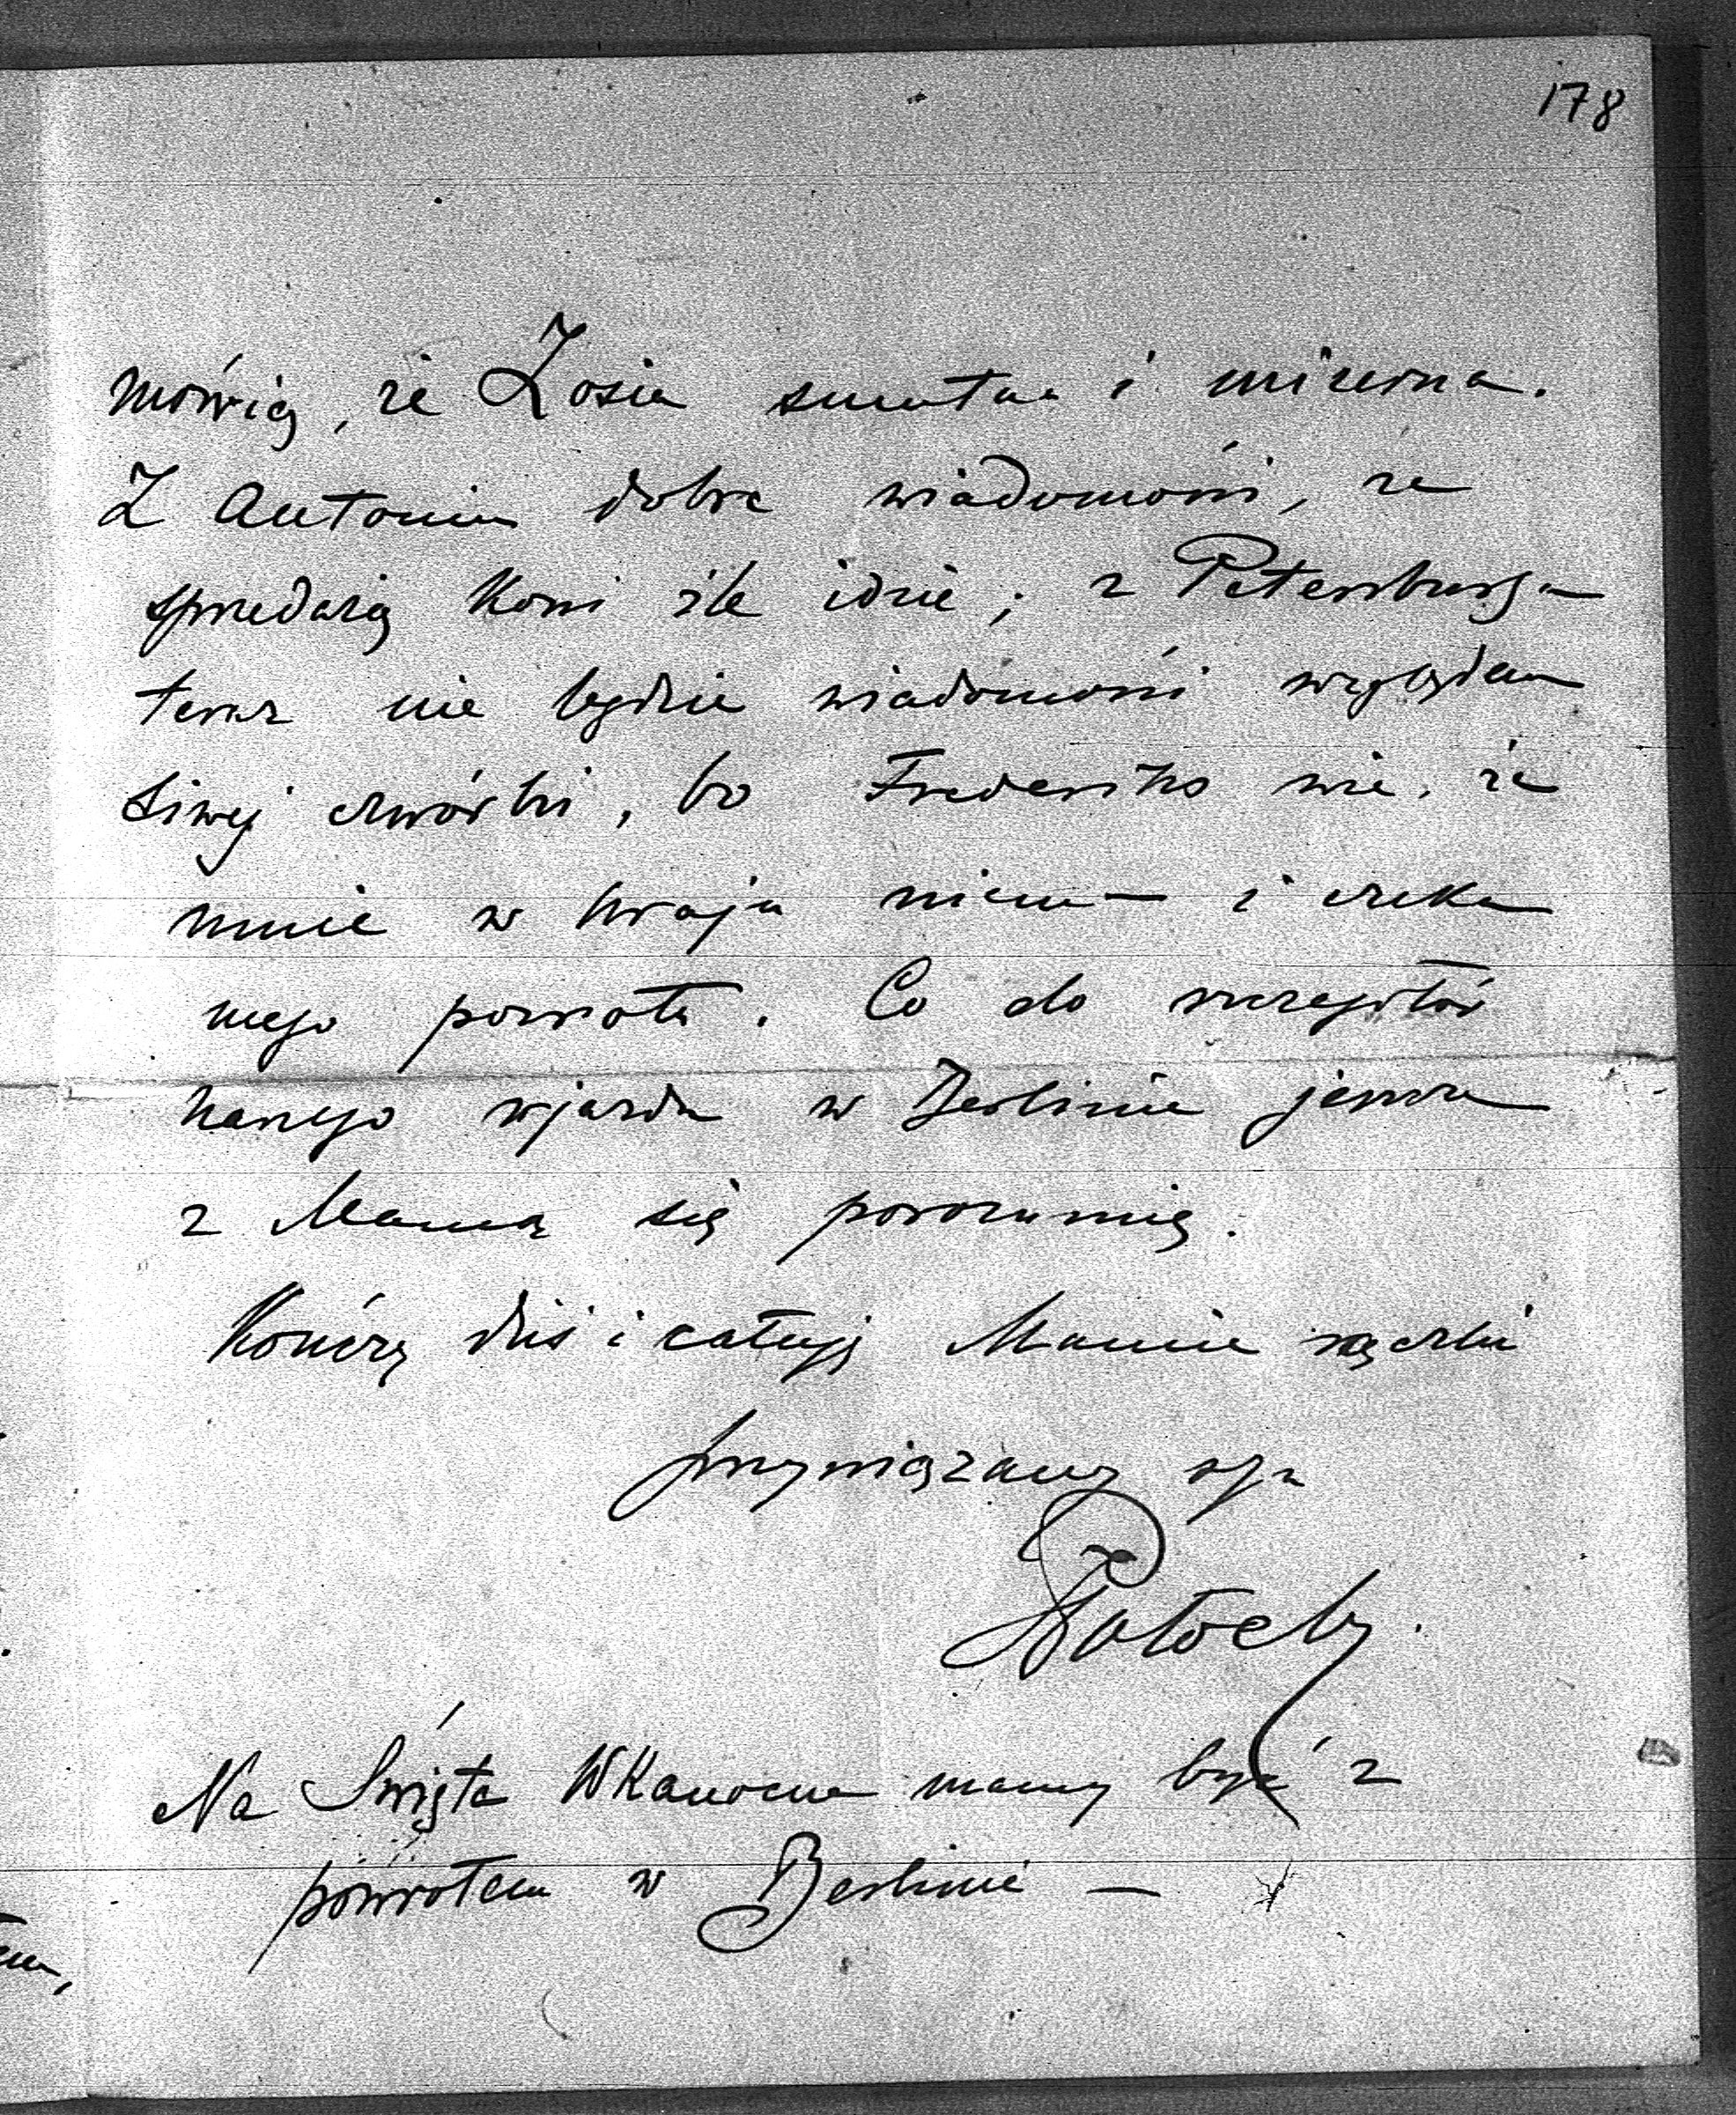 178
mówią, że Zosia smutna i mizerna.
Z Antonin dobre wiadomości, ze
sprzedażą koni źle idzie; z Petersburga
teraz nie będzie wiadomości względem
siwej czwórki, bo Frederiks wie, że
mnie w kraju niema i czeka
mego powrotu. Co do szczegółów
naszego wjazdu w Berlinie jeszcze
z Mamą się porozumię.
Kończę dziś i całuję Mamie rączki
przywiązany syn
Potocki.
Na Święta Wkanocne mamy być z
powrotem w Berlinie —